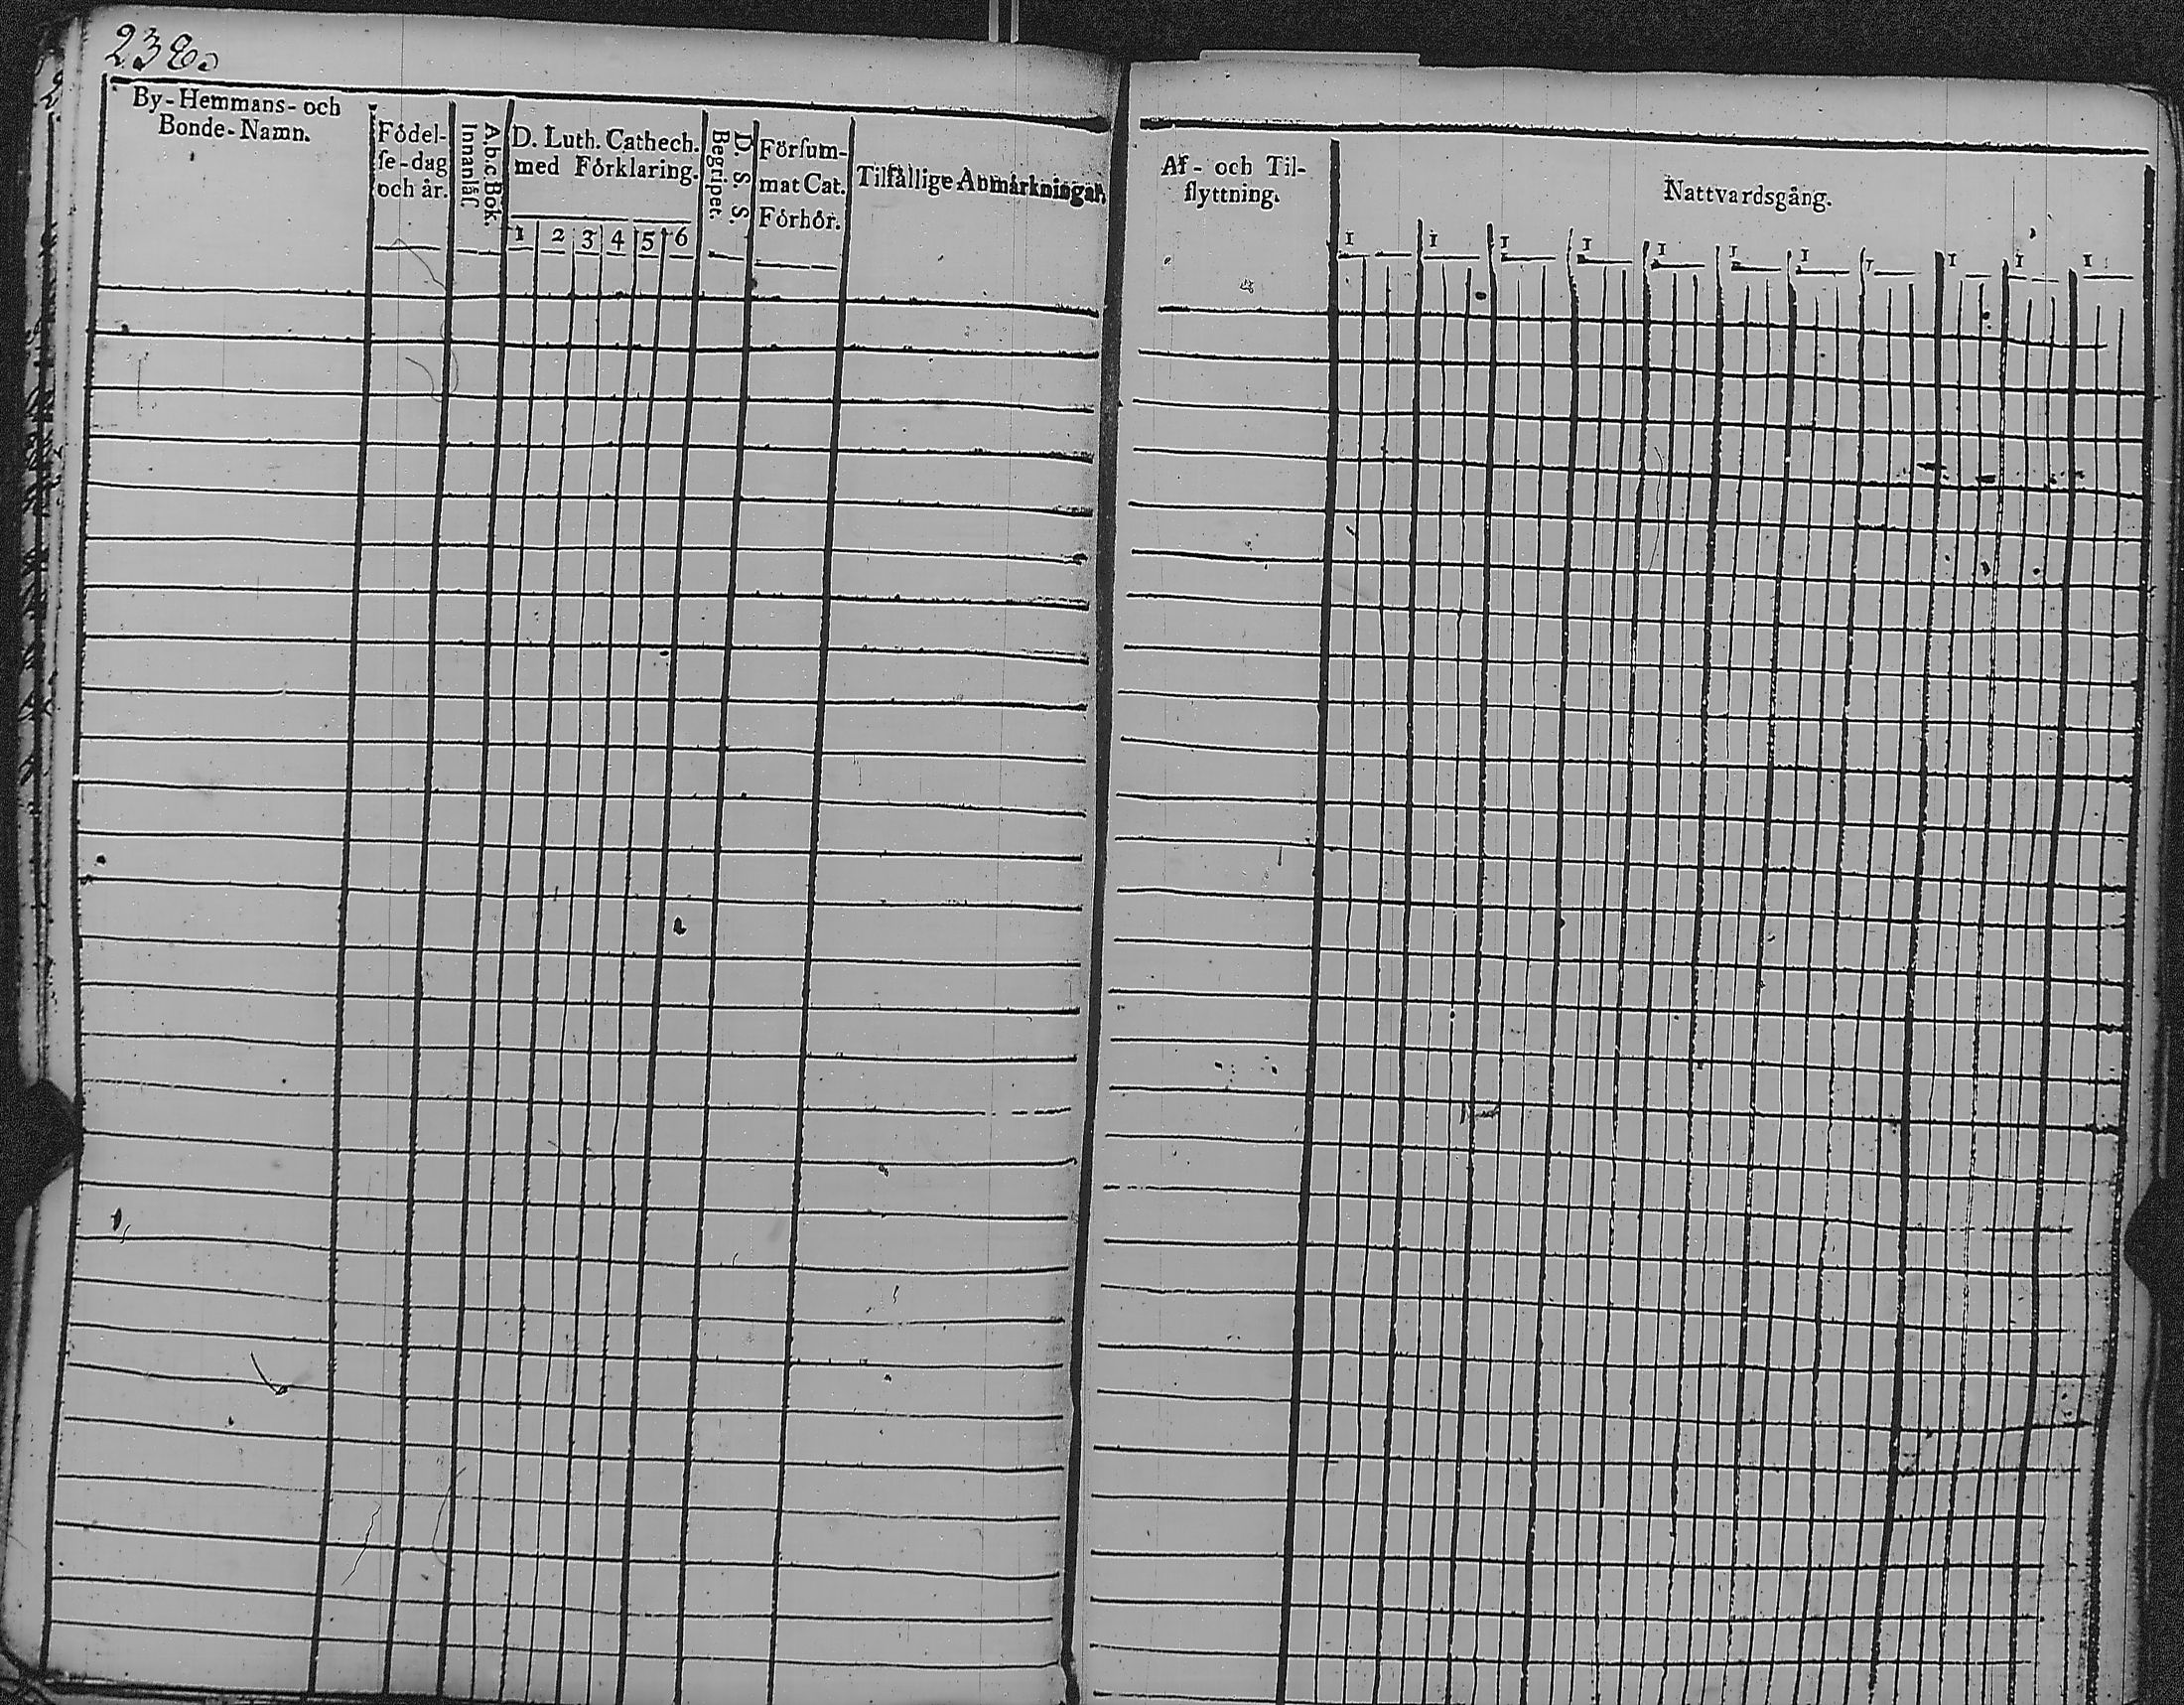 238.
By-Hemmans- och
Bonde-Namn.
Födel-
ſe-dag
och år.
A.b.c Bok.
Innanläſ
D. Luth. Cathech.
med Förklaring.
1 2 3 4 5 6
D. S. S. S.
Begripet.
Förſum-
mat Cat.
Förhör.
Tilfällige Anmärkningar.
Af- och Til-
flyttning.
Nattvardsgång.
1 1 1 1 1 1 1 1 1 1 1